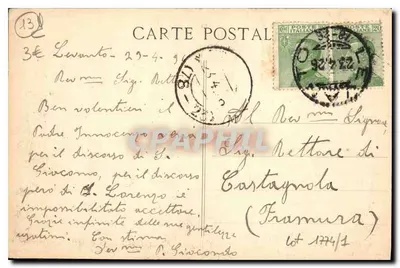 13
CARTE POSTALE
3e Levanto - 29-4-
Rev mo Sig. Rettore
Ben volentieri il
Padre Innocenzo
per il discorso di S.
Giacomo, per il discorso
però di S. Lorenzo è
impossibilitato accettare.
Grazie infinite delle sue gentilezze
Con stima
Dev mo P. Giocondo
POSTE ITALIANE
23.4.26
Al Rev. Signore
Sig. Rettore di
Castagnola
(Framura)
Lot 1774/1
CPAPHIL